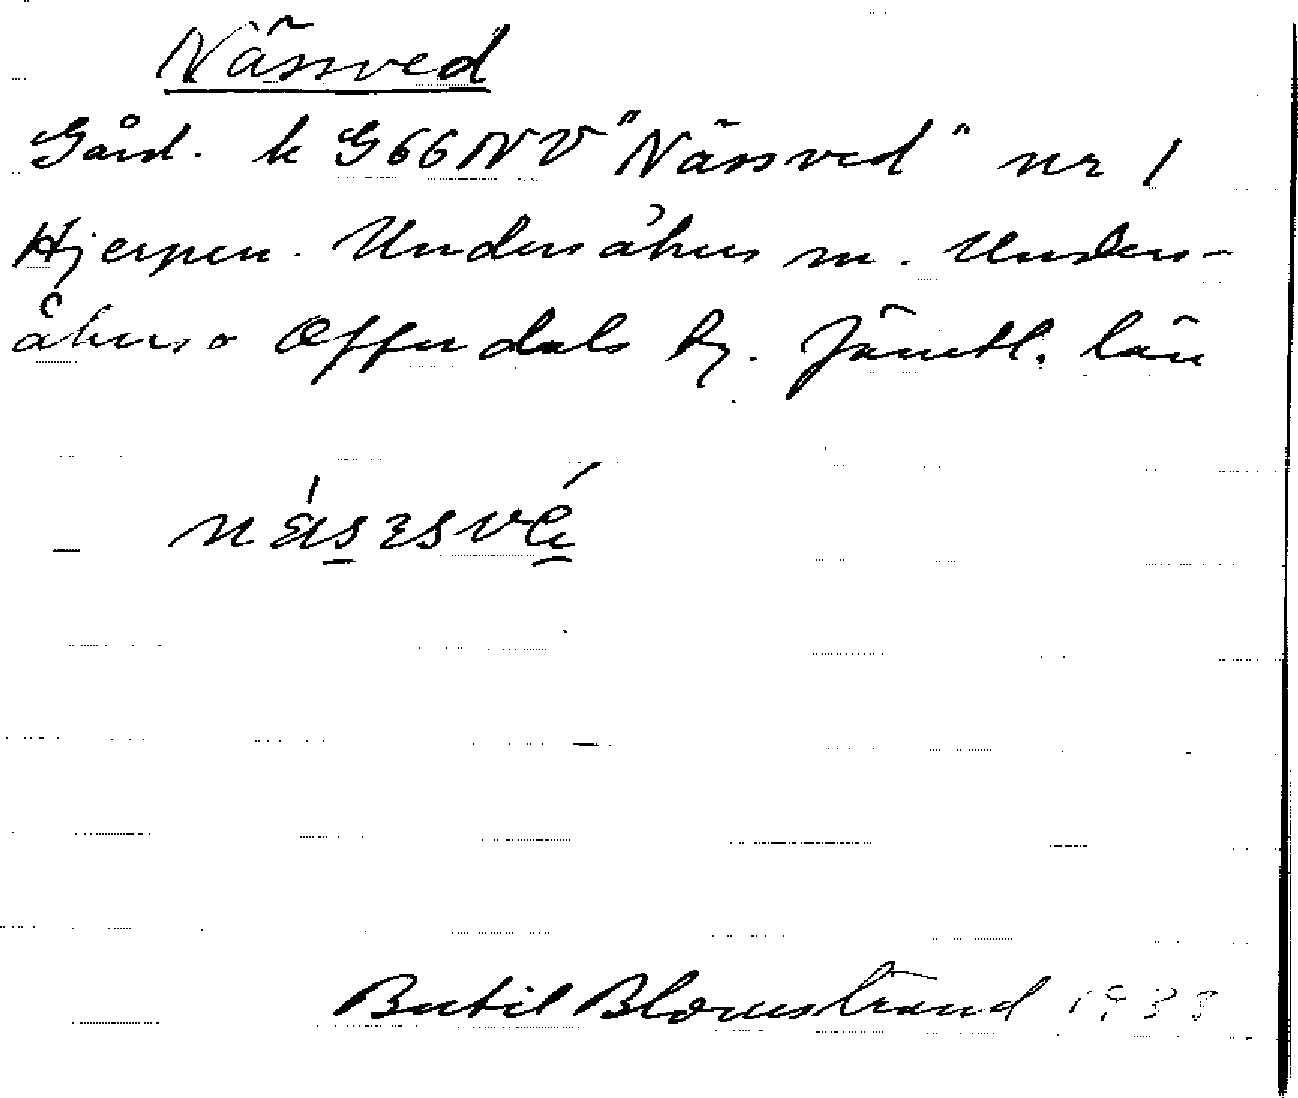 Nässved
Gård. k G66NV "Nässved" nr 1
Hjerpen. Undersåkers sn. Unders-
åkers o Offerdals tg. Jämtl. län
Bertil Blomstrand 1938